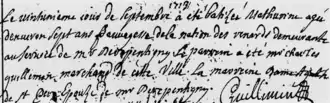 Le vintunieme jour de septembre à eté batisée Mathurine agée
denviron sept ans Sauvagesse de la nation des renards demeurante
au service de mr Derepentigny Le parrain a eté mr charles
guillemin marchand de cette Ville La marraine
de Mr Derepentigny
Guillemin